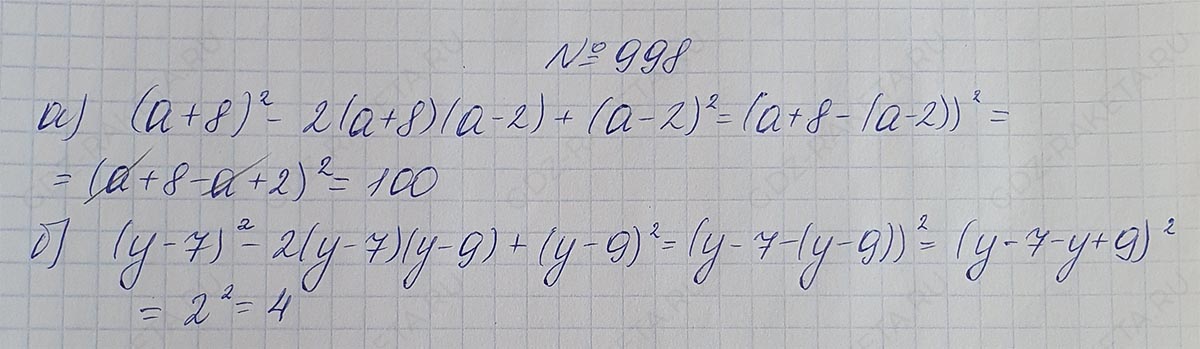 № 998
а) (a+8)² - 2(a+8)(a-2) + (a-2)² = (a+8-(a-2))² =
= (a+8-a+2)² = 100
б) (y-7)² - 2(y-7)(y-9) + (y-9)² = (y-7-(y-9))² = (y-7-y+9)²
= 2² = 4
GDZ-RAKETA.RU